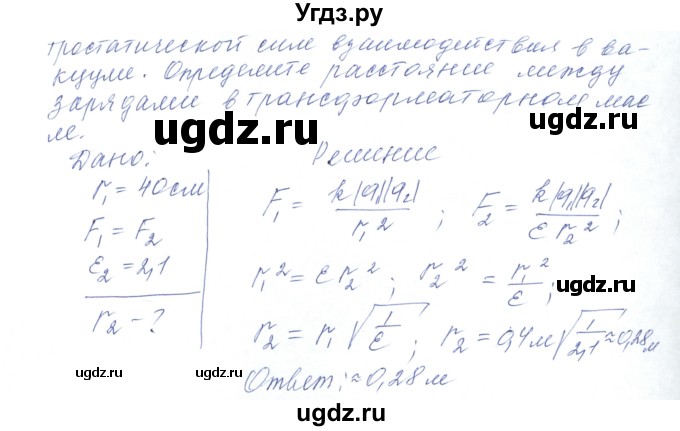 Угдз.ру
тростатической силе взаимодействия в ва-
кууме. Определите расстояние между
зарядами в трансформаторном мас
ле.
ugdz.ru ugdz.ru
Дано: Решение
r₁ = 40см
F₁ = F₂
ε₂ = 2,1
r₂ - ?
F₁ = k|q₁||q₂| / r₁² ; F₂ = k|q₁||q₂| / ε r₂² ;
ugdz.ru ugdz.ru
r₁² = ε r₂² ; r₂² = r₁² / ε ;
r₂ = r₁ √(1/ε) ; r₂ = 0,4м √(1/2,1) ≈ 0,28м
ugdz.ru ugdz.ru
Ответ: ≈ 0,28 м
ugdz.ru